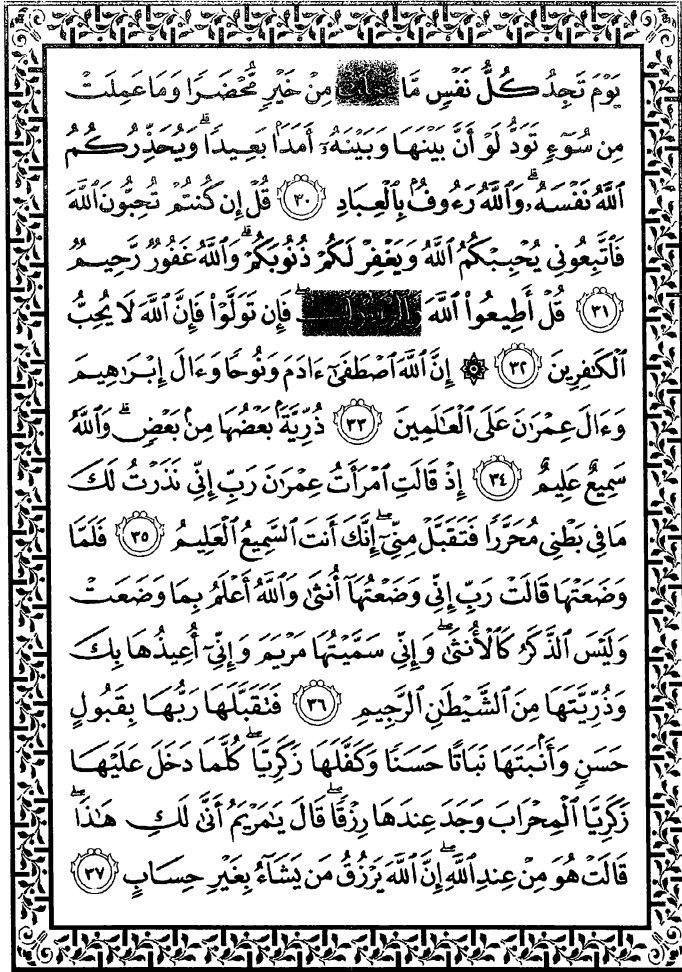 يَوْمَ تَجِدُ كُلُّ نَفْسٍ مَّا مِنْ خَيْرٍ مُّحْضَرًا وَمَا عَمِلَتْ
مِن سُوٓءٍ تَوَدُّ لَوْ أَنَّ بَيْنَهَا وَبَيْنَهُۥٓ أَمَدًۢا بَعِيدًا ۗ وَيُحَذِّرُكُمُ
ٱللَّهُ نَفْسَهُۥ ۗ وَٱللَّهُ رَءُوفٌۢ بِٱلْعِبَادِ ٣٠ قُلْ إِن كُنتُمْ تُحِبُّونَ ٱللَّهَ
فَٱتَّبِعُونِى يُحْبِبْكُمُ ٱللَّهُ وَيَغْفِرْ لَكُمْ ذُنُوبَكُمْ ۗ وَٱللَّهُ غَفُورٌ رَّحِيمٌ
٣١ قُلْ أَطِيعُوا۟ ٱللَّهَ ۖ فَإِن تَوَلَّوْا۟ فَإِنَّ ٱللَّهَ لَا يُحِبُّ
ٱلْكَـٰفِرِينَ ٣٢ ۞ إِنَّ ٱللَّهَ ٱصْطَفَىٰٓ ءَادَمَ وَنُوحًا وَءَالَ إِبْرَٰهِيمَ
وَءَالَ عِمْرَٰنَ عَلَى ٱلْعَـٰلَمِينَ ٣٣ ذُرِّيَّةًۢ بَعْضُهَا مِنۢ بَعْضٍ ۗ وَٱللَّهُ
سَمِيعٌ عَلِيمٌ ٣٤ إِذْ قَالَتِ ٱمْرَأَتُ عِمْرَٰنَ رَبِّ إِنِّى نَذَرْتُ لَكَ
مَا فِى بَطْنِى مُحَرَّرًا فَتَقَبَّلْ مِنِّىٓ ۖ إِنَّكَ أَنتَ ٱلسَّمِيعُ ٱلْعَلِيمُ ٣٥ فَلَمَّا
وَضَعَتْهَا قَالَتْ رَبِّ إِنِّى وَضَعْتُهَآ أُنثَىٰ وَٱللَّهُ أَعْلَمُ بِمَا وَضَعَتْ
وَلَيْسَ ٱلذَّكَرُ كَٱلْأُنثَىٰ ۖ وَإِنِّى سَمَّيْتُهَا مَرْيَمَ وَإِنِّىٓ أُعِيذُهَا بِكَ
وَذُرِّيَّتَهَا مِنَ ٱلشَّيْطَـٰنِ ٱلرَّجِيمِ ٣٦ فَتَقَبَّلَهَا رَبُّهَا بِقَبُولٍ
حَسَنٍ وَأَنۢبَتَهَا نَبَاتًا حَسَنًا وَكَفَّلَهَا زَكَرِيَّا ۖ كُلَّمَا دَخَلَ عَلَيْهَا
زَكَرِيَّا ٱلْمِحْرَابَ وَجَدَ عِندَهَا رِزْقًا ۖ قَالَ يَـٰمَرْيَمُ أَنَّىٰ لَكِ هَـٰذَا ۖ
قَالَتْ هُوَ مِنْ عِندِ ٱللَّهِ ۖ إِنَّ ٱللَّهَ يَرْزُقُ مَن يَشَآءُ بِغَيْرِ حِسَابٍ ٣٧